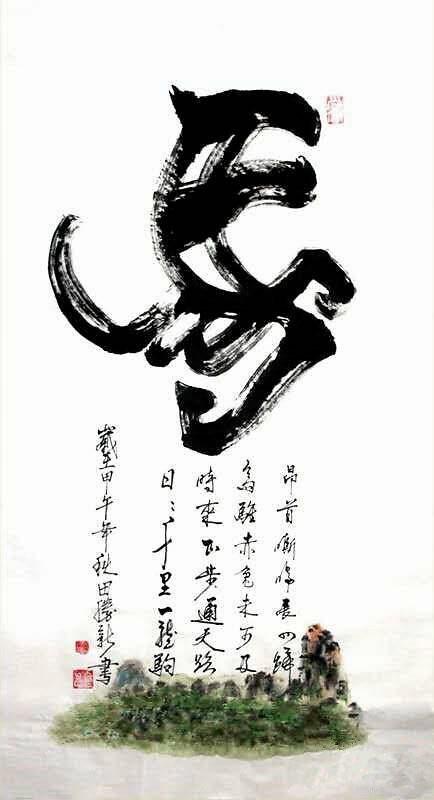 馬
昂首嘶鳴展四蹄
烏騅赤兔未可及
時來步通天路
日行千里一龍駒
歲在甲午年秋田新書